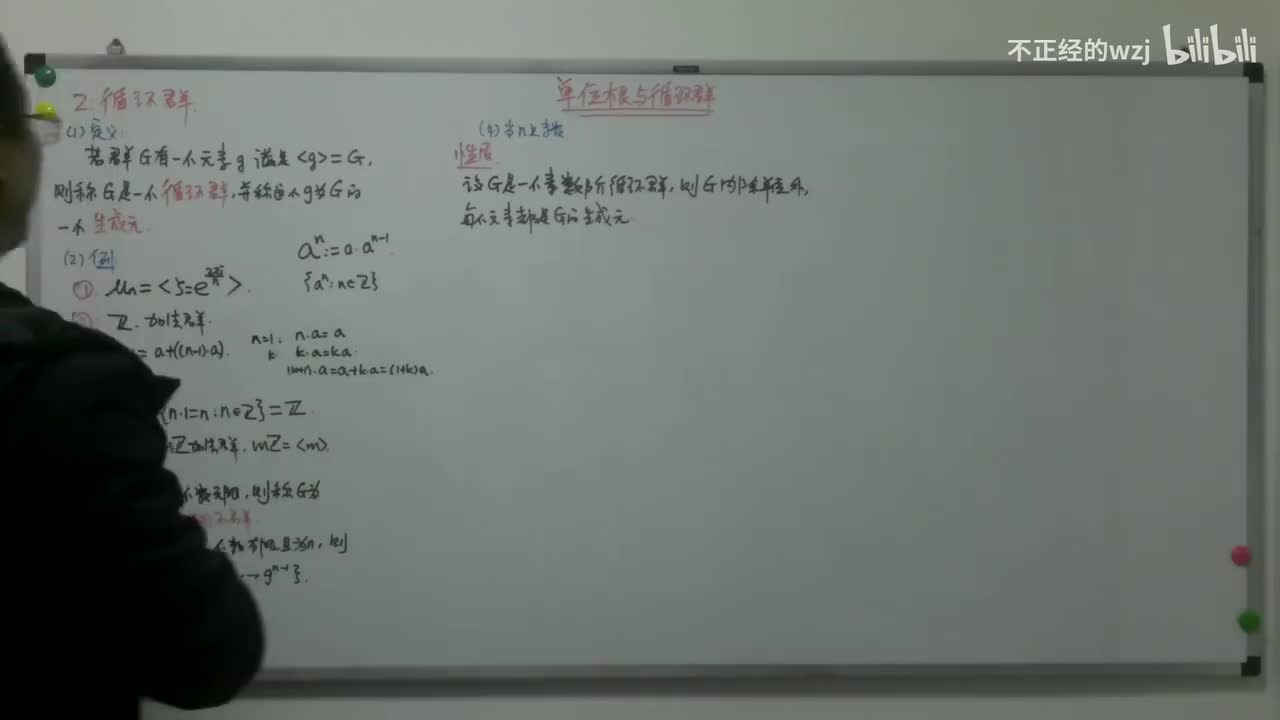 不正经的wzj bilibili
单位根与循环群
2. 循环群.
(1) 定义:
若群G有一个元素g 满足<g>=G,
则称G是一个循环群,并称这个g为G的
一个生成元.
(2) 例:
aⁿ:=a·aⁿ⁻¹.
{aⁿ:n∈Z}
① μn=<ζ=e^{2πi/n}>.
ℤ.加法群.
= a+((n-1)·a).
n=1, n·a=a
k k·a=ka.
(k+1)·a=a+k·a=(1+k)a.
{n·1=n:n∈Z}=ℤ.
mℤ加法群. mℤ=<m>.
个数无限,则称G为
个数有限且为n,则
gⁿ⁻¹}.
(4) 当n是素数
性质.
设G是一个素数阶循环群,则G内除单位外,
每个元素都是G的生成元.